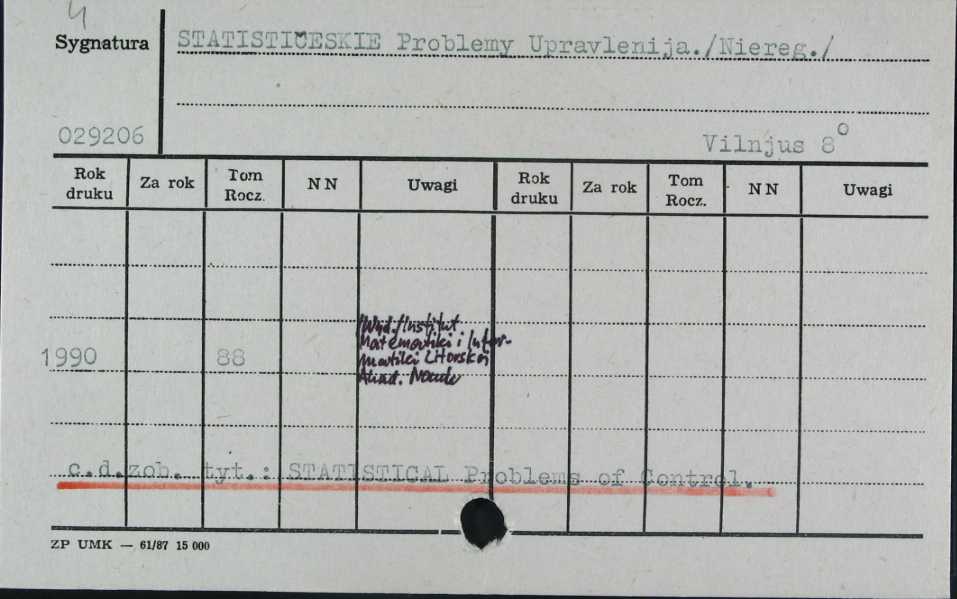 4
Sygnatura STATISTIČESKIE Problemy Upravlenija./Niereg./
029206 Vilnjus 8°
Rok druku Za rok Tom Rocz. NN Uwagi Rok druku Za rok Tom Rocz. NN Uwagi
/Wyd./Institut
Matematiki i Infor-
1990 88 matiki Litovskoj
Akad. Nauk
c.d.zob. tyt.: STATISTICAL Problems of Control.
ZP UMK — 61/87 15 000